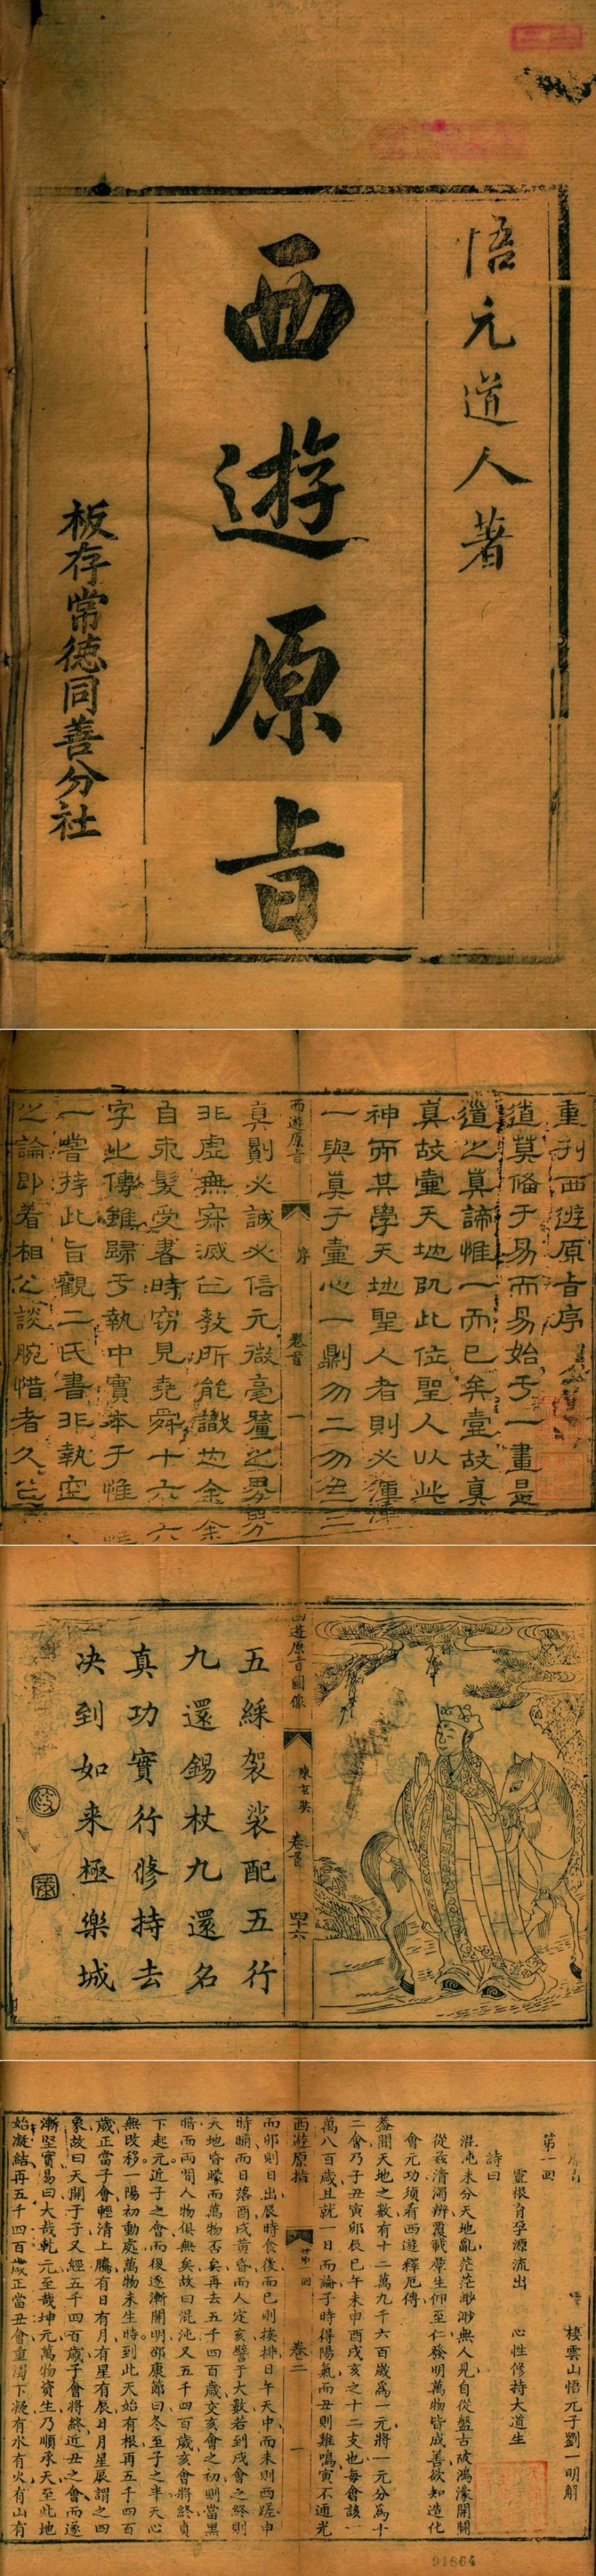 悟元道人著
西遊原旨
板存常德同善分社
重刋西遊原旨序
道莫偹于易而易始于一畫是
道之真諦惟一而已矣壹故真
真故壹天地既此位聖人以此
神而其學天地聖人者則必
一與真于壹心一則勿二勿
西遊原旨
序
卷首
一
真則必誠必信元微毫釐之界
非虛無寂滅之教所能識也余
自束髮受書時窃見堯舜十六
字之傳雖歸于執中實本于惟
一嘗持此旨觀二氏書非執空
之論即着相之談腕惜者久之
西遊原旨圖像
陳玄奘
卷首
四十六
五綵袈裟配五行
九還錫杖九還名
真功實行修持去
决到如来極樂城
第一回
靈根育孕源流出 心性修持大道生
棲雲山悟元子劉一明解
詩曰
混沌未分天地亂茫茫渺渺無人見自從盤古破鴻濛開闢
從兹清濁辨覆載羣生仰至仁發明萬物皆成善欲知造化
會元功須看西遊釋厄傳
葢聞天地之數有十二萬九千六百歲爲一元將一元分爲十
二會乃子丑寅卯辰巳午未申酉戌亥之十二支也每會該一
萬八百歲且就一日而論子時得陽氣而丑則雞鳴寅不通光
西遊原旨
第一回
卷二
一
而卯則日出辰時食後而巳則挨排日午天中而未則西蹉申
時晡而日落酉戌黄昏而人定亥譬于大數若到戌會之終則
天地昏曚而萬物否矣再去五千四百歲交亥會之初則當黑
暗而兩間人物俱無矣故曰混沌又五千四百歲亥會將終貞
下起元近子之會而復逐漸開明邵康節曰冬至子之半天心
無改移一陽初動處萬物未生時到此天始有根再五千四百
歲正當子會輕清上騰有日有月有星有辰日月星辰謂之四
象故曰天開于子又經五千四百歲子會將終近丑之會而逐
漸堅實易曰大哉乾元至哉坤元萬物資生乃順承天至此地
始凝結再五千四百歲正當丑會重濁下凝有水有火有山有
91864